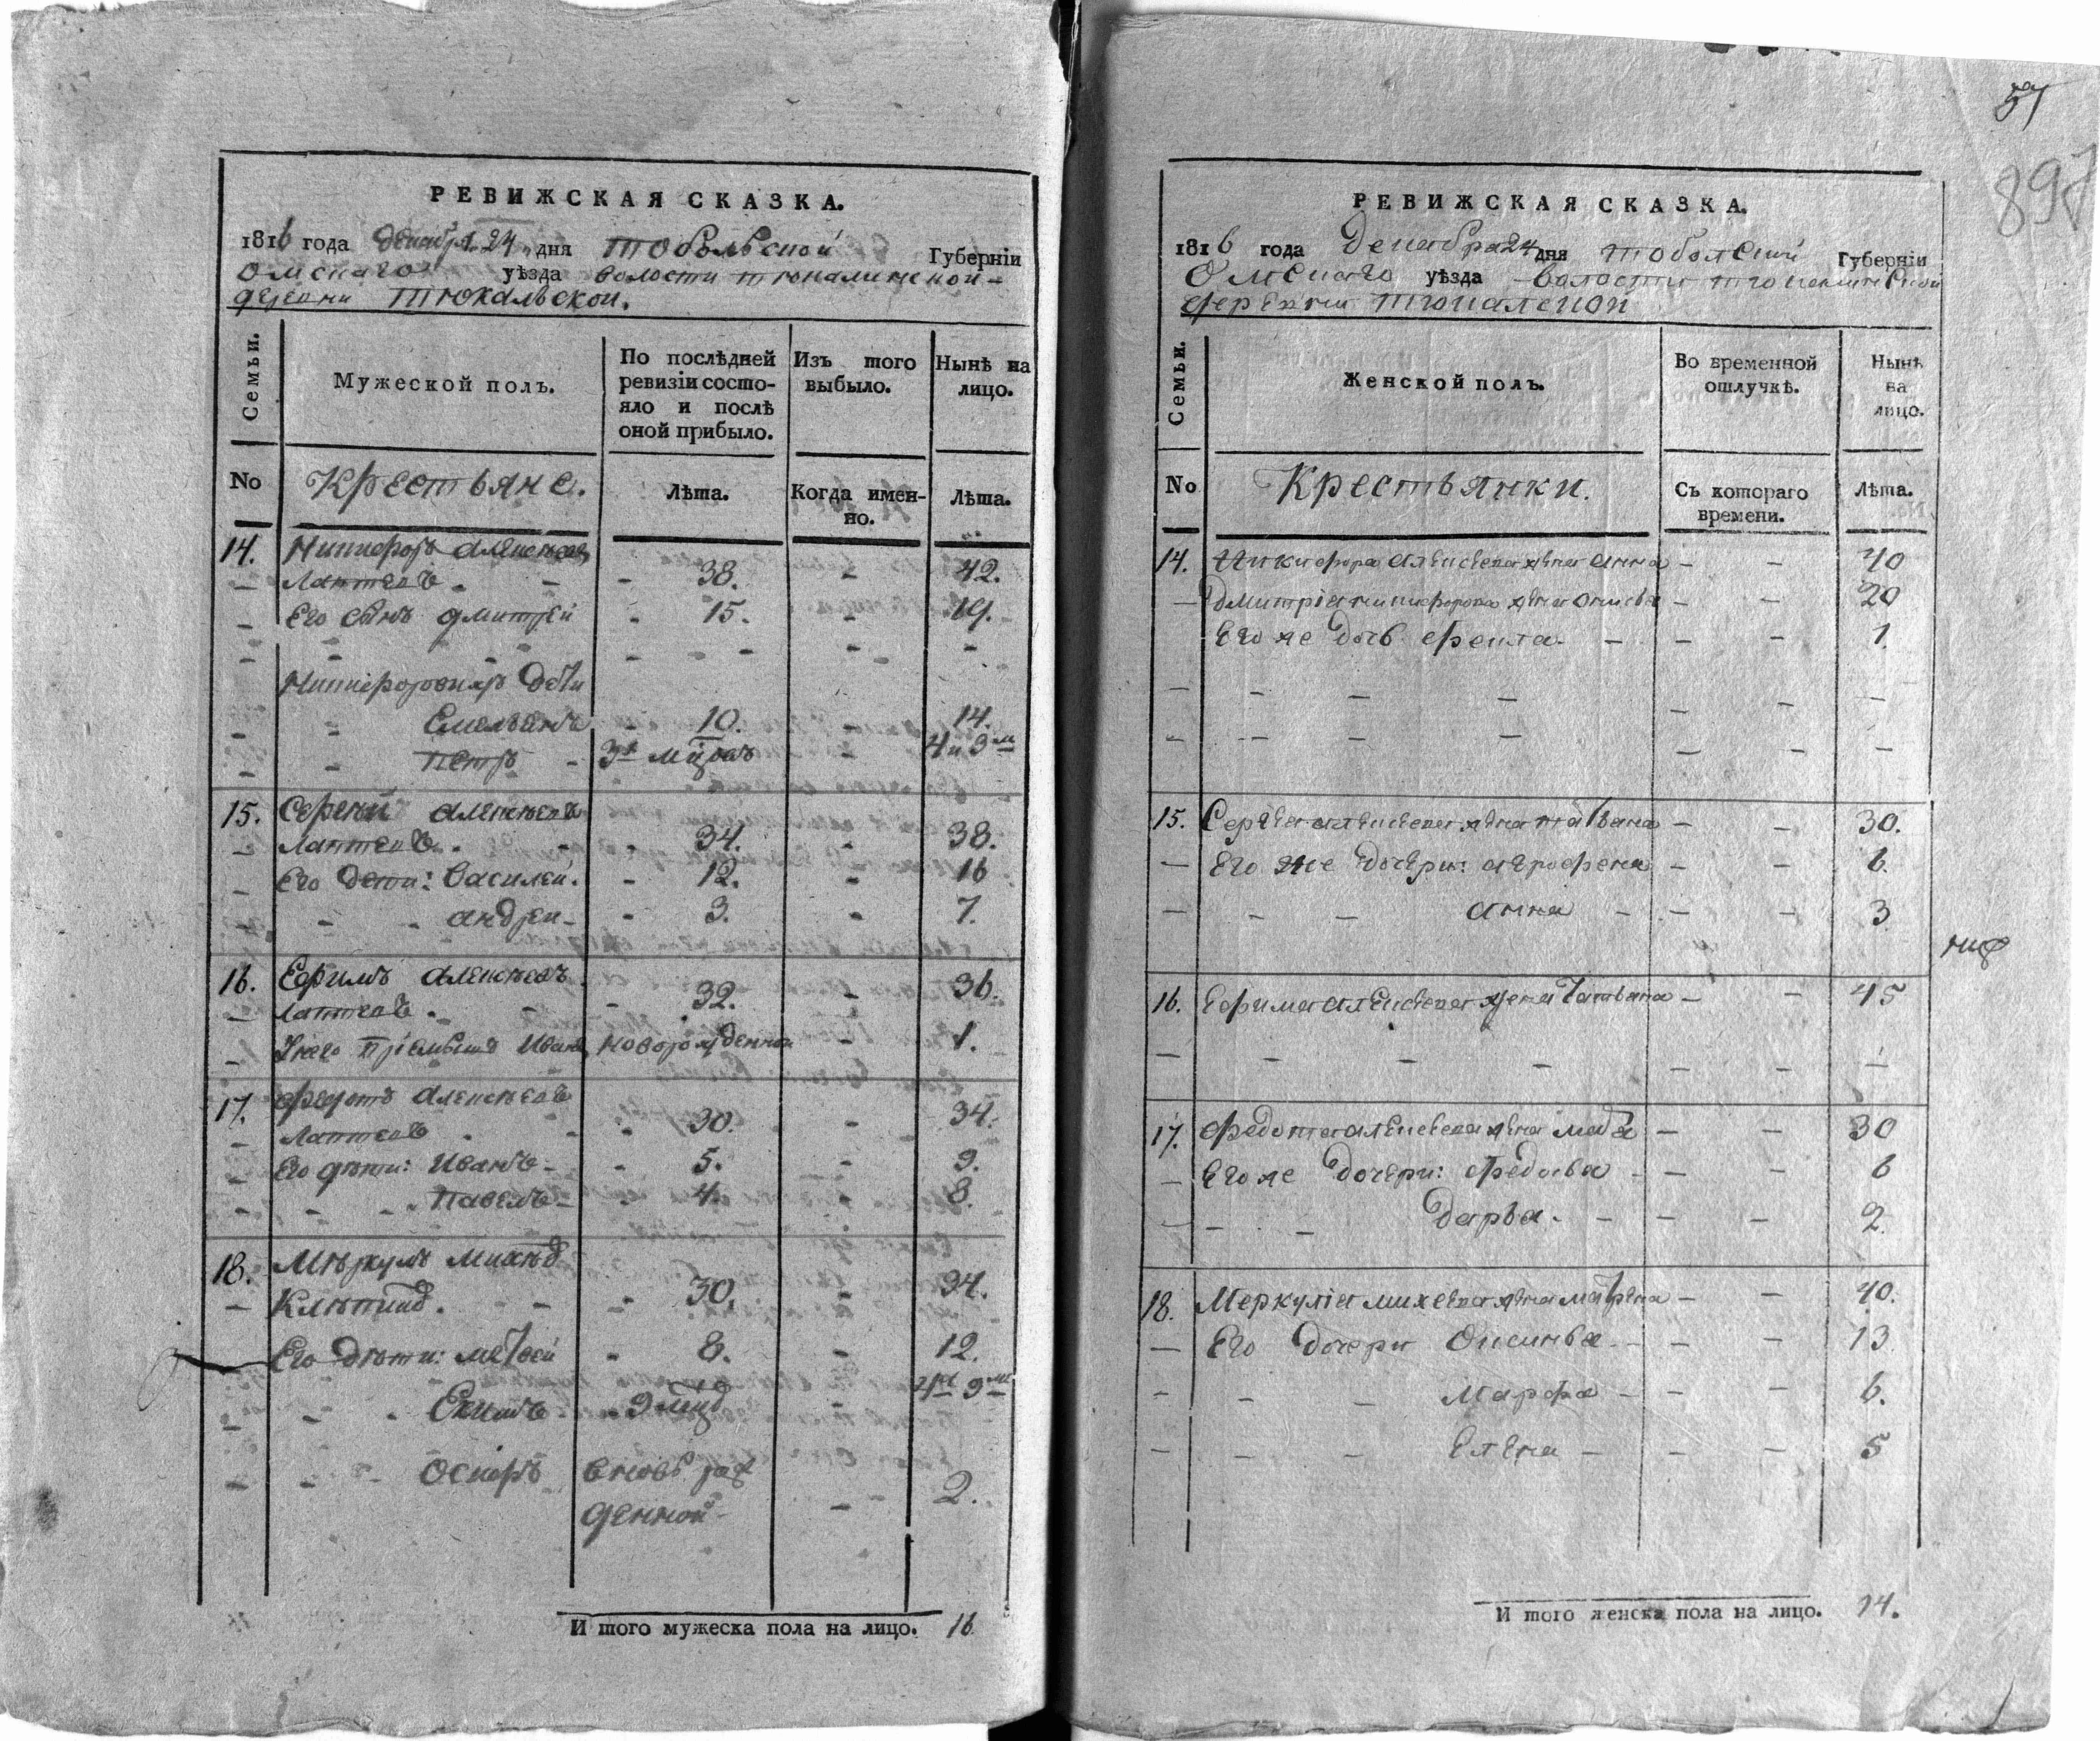 РЕВИЖСКАЯ СКАЗКА.
1816 года декабря 24 дня Тобольской Губерніи
Омскаго уѣзда волости Тюкалинской
деревни Тюкальской.
Семьи.
Мужеской полъ.
По послѣдней ревизіи состо-
яло и послѣ
оной прибыло.
Изъ того выбыло.
Нынѣ на лицо.
No
Крестьяне.
Лѣта.
Когда имен-
но.
Лѣта.
14. Никифоръ Алексѣевъ
Лаптевъ. 38. 42.
Его сынъ Дмитрей 15. 19.
Никифоровыхъ дѣти
Емельянъ 10. 14.
Петръ 3х мцовъ 4 и 3м
15. Сергѣй Алексѣевъ
Лаптевъ. 34. 38.
Его дети: Василей. 12. 16
Андрей 3. 7.
16. Ефимъ Алексѣевъ.
Лаптевъ. 32. 36.
У него пріемышъ Иванъ новорожденной 1.
17. Федотъ Алексѣевъ
Лаптевъ 30. 34.
Его дѣти: Иванъ 5. 9.
Павелъ 4. 8.
18. Мѣркулъ Михѣевъ
30. 34.
Его дѣти: Матвей 8. 12.
Екимъ 9 мцъ
Осипъ вновь рож
денной 2.
И того мужеска пола на лицо. 16
897
РЕВИЖСКАЯ СКАЗКА.
1816 года Декабра 24 дня Тобольской Губерніи
Омскаго уѣзда волости Тюкалинской
деревни Тюкалской
Семьи.
Женской полъ.
Во временной
отлучкѣ.
Нынѣ
на
лицо.
No
Крестьянки.
Съ котораго
времени.
Лѣта.
14. Никифора Алексѣева жена Анна 40
Дмитрія Никифорова жена 20
Его же дочь Фекла 1.
15. Сергѣя Алексѣева жена Татьяна 30.
Его же дочери: Аграфена 6.
Анна 3
16. Ефима Алексѣева жена Татьяна 45
17. Федота Алексѣева жена 30
Его же дочери: Федосья 6
Дарья. 2
18. Меркулія Михеева жена Матрена 40.
Его дочери Оксинья 13
Марфа 6.
Елена 5
И того женска пола на лицо. 14.